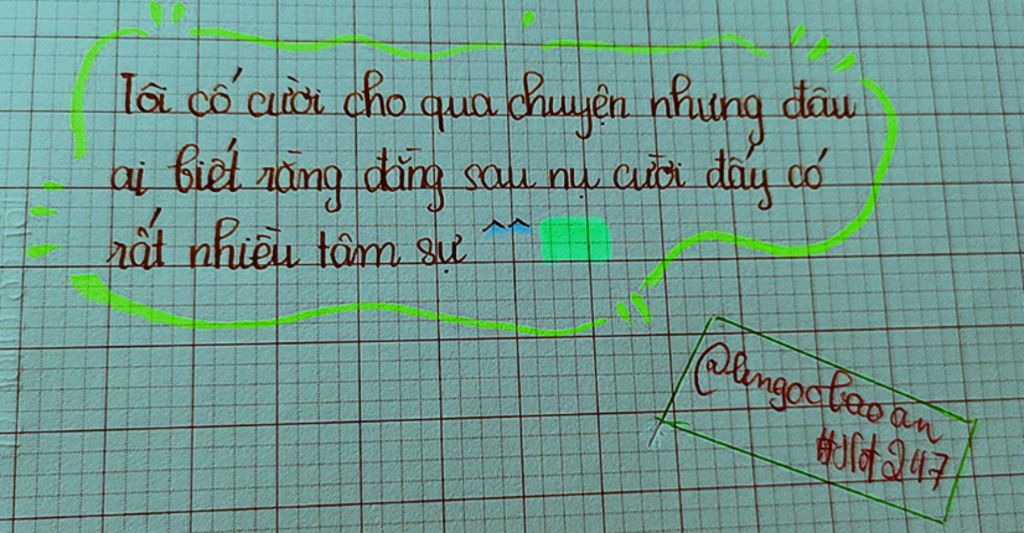 Tôi cố cười cho qua chuyện nhưng đâu
ai biết rằng đằng sau nụ cười đấy có
rất nhiều tâm sự ^^
@lengocbaoan
247